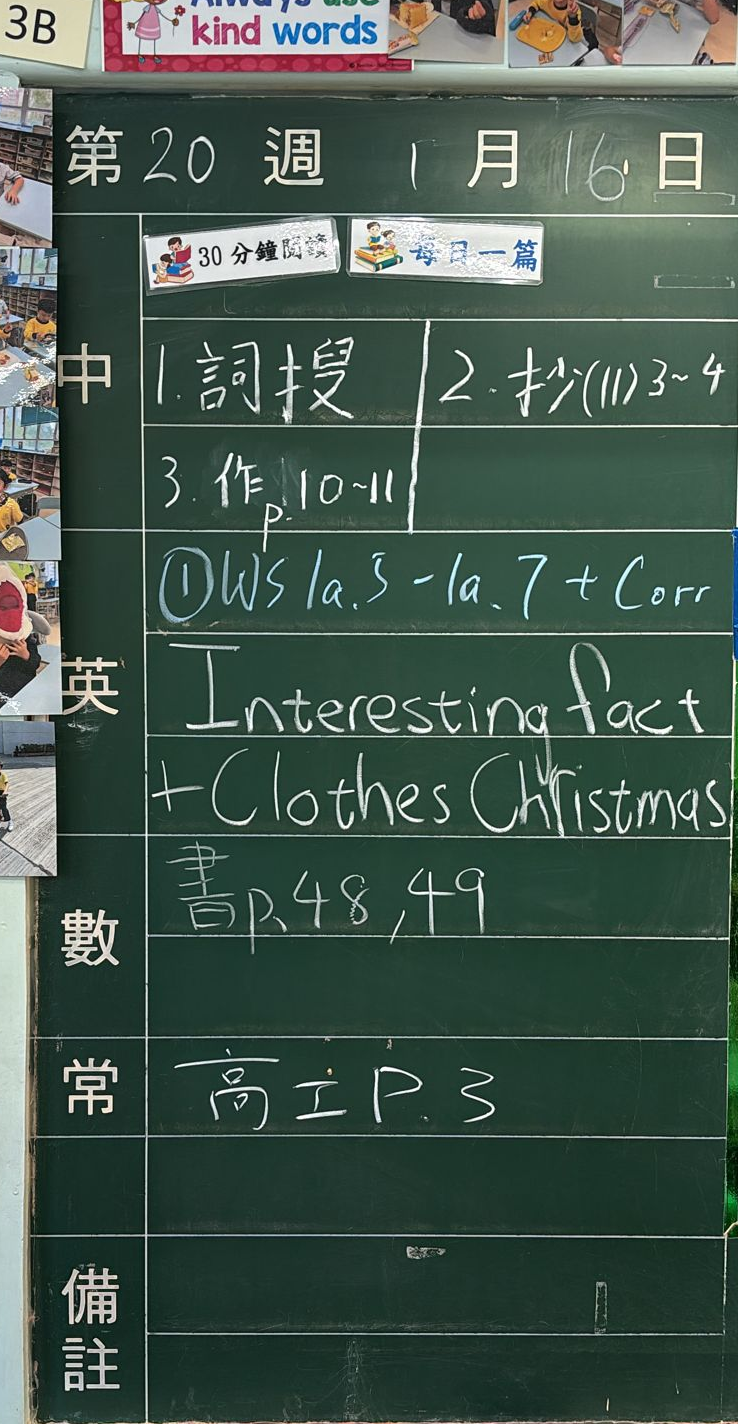 3B
Always use
kind words
第 20 週 1 月 16 日
30 分鐘閱讀 每日一篇
中
1. 詞搜 2. 抄(11) 3~4
3. 作 p. 10~11
英
① WS 1a.5 - 1a.7 + Corr
Interesting fact
+ Clothes Christmas
數
書 p. 48, 49
常
高工 P. 3
備
註